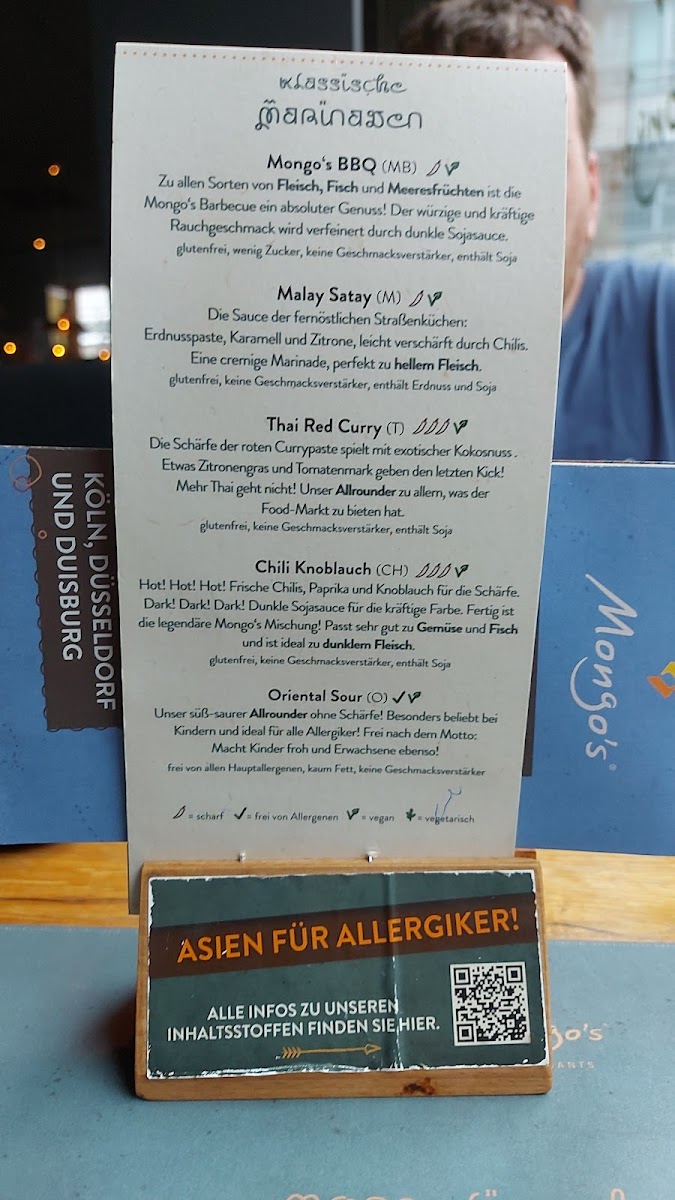 Klassische
Marinaden
Mongo's BBQ (MB)
Zu allen Sorten von Fleisch, Fisch und Meeresfrüchten ist die
Mongo's Barbecue ein absoluter Genuss! Der würzige und kräftige
Rauchgeschmack wird verfeinert durch dunkle Sojasauce.
glutenfrei, wenig Zucker, keine Geschmacksverstärker, enthält Soja
Malay Satay (M)
Die Sauce der fernöstlichen Straßenküchen:
Erdnusspaste, Karamell und Zitrone, leicht verschärft durch Chilis.
Eine cremige Marinade, perfekt zu hellem Fleisch.
glutenfrei, keine Geschmacksverstärker, enthält Erdnuss und Soja
Thai Red Curry (T)
Die Schärfe der roten Currypaste spielt mit exotischer Kokosnuss .
Etwas Zitronengras und Tomatenmark geben den letzten Kick!
Mehr Thai geht nicht! Unser Allrounder zu allem, was der
Food-Markt zu bieten hat.
glutenfrei, keine Geschmacksverstärker, enthält Soja
Chili Knoblauch (CH)
Hot! Hot! Hot! Frische Chilis, Paprika und Knoblauch für die Schärfe.
Dark! Dark! Dark! Dunkle Sojasauce für die kräftige Farbe. Fertig ist
die legendäre Mongo's Mischung! Passt sehr gut zu Gemüse und Fisch
und ist ideal zu dunklem Fleisch.
glutenfrei, keine Geschmacksverstärker, enthält Soja
Oriental Sour (O)
Unser süß-saurer Allrounder ohne Schärfe! Besonders beliebt bei
Kindern und ideal für alle Allergiker! Frei nach dem Motto:
Macht Kinder froh und Erwachsene ebenso!
frei von allen Hauptallergenen, kaum Fett, keine Geschmacksverstärker
= scharf = frei von Allergenen = vegan = vegetarisch
KÖLN, DÜSSELDORF
UND DUISBURG
Mongo's
ASIEN FÜR ALLERGIKER!
ALLE INFOS ZU UNSEREN
INHALTSSTOFFEN FINDEN SIE HIER.